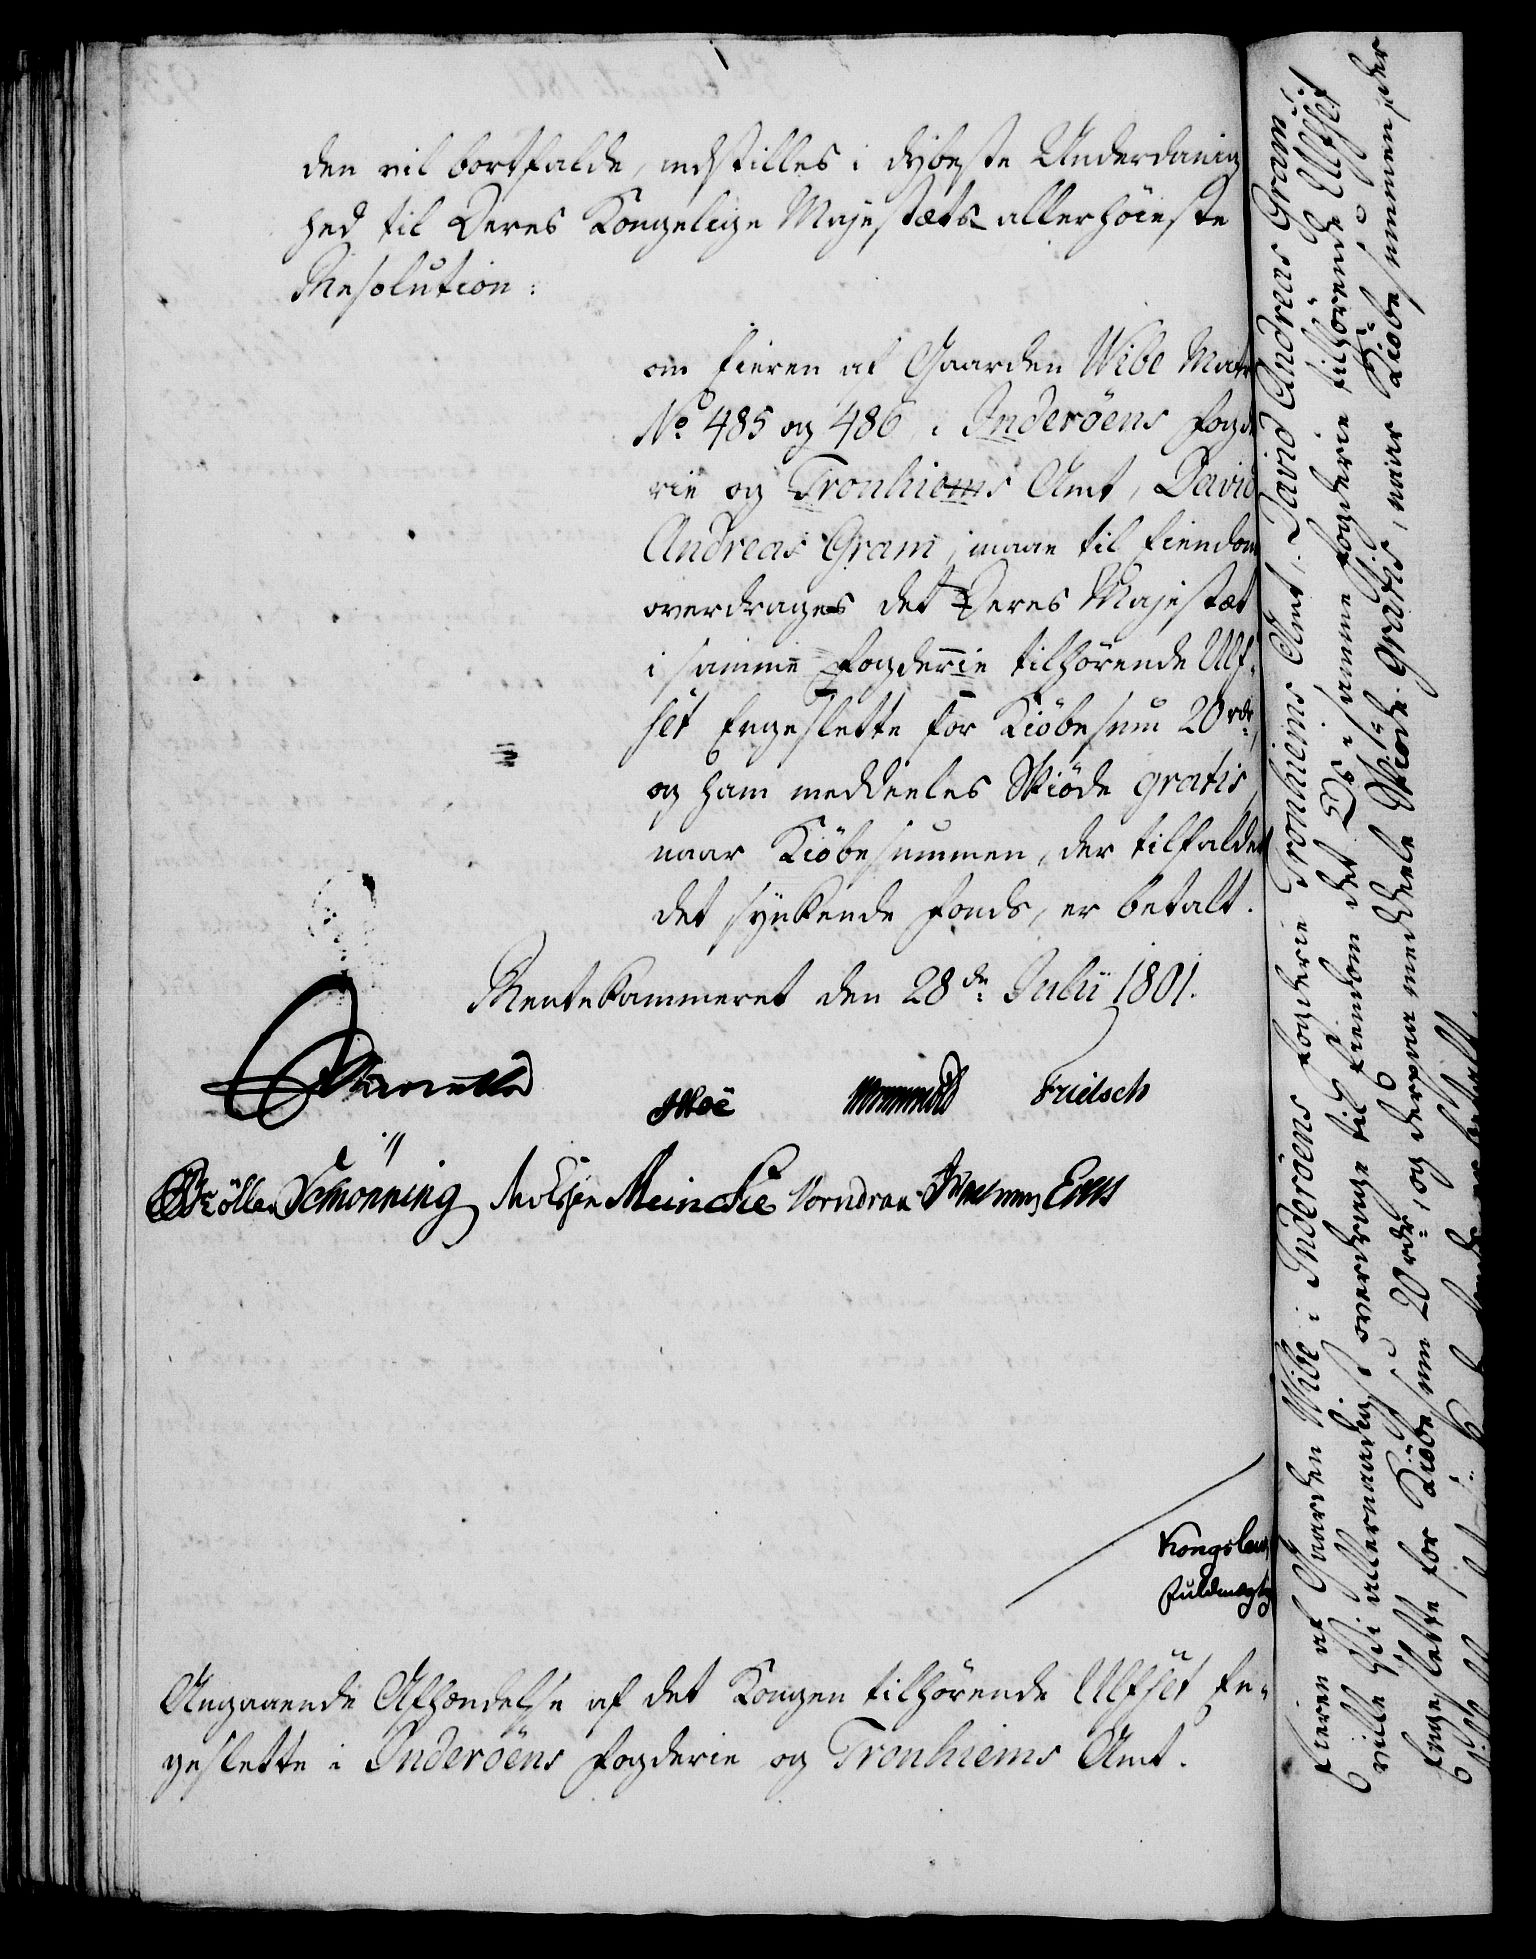 den vil bortfalde, indstilles i dybeste Underdanig
hed til Deres Kongelige Majestæts allerhöieste
Resolution:
om Eieren af Gaarden Wibe Matr
No 485 og 486, i Inderöens Fogde
rie og Tronhiems Amt, David
Andreas Gram, maae til Eiendom
overdrages det Deres Majestæt
i samme Fogderie tilhörende Ulf-
set Engeslette for Kiöbesum 20 rdr,
og ham meddeeles Skiöde gratis,
naar Kiöbesummen, der tilfalder
det synkende Fonds, er betalt.
Rentekammeret den 28de Julii 1801.
Hoë Wormskiold Fridsch
Möller Schönning Meincke Vorndran Eeg
Kongslew
Fuldmægtig
Angaaende Afhændelse af det Kongen tilhörende Ulfset En-
geslette i Inderöens Fogderie og Tronhiems Amt.
Eieren af Gaarden Wibe i Inderöens Fogderie Tronhiems Amt, David Andreas Gram,
ville Vi allernaadigst overdrage til Eiendom det Os i samme Fogderie tilhörende Ulfset
Engeslette for Kiöbesum 20 rdr, og derpaa meddele Skiöde gratis, naar Kiöbesummen, der